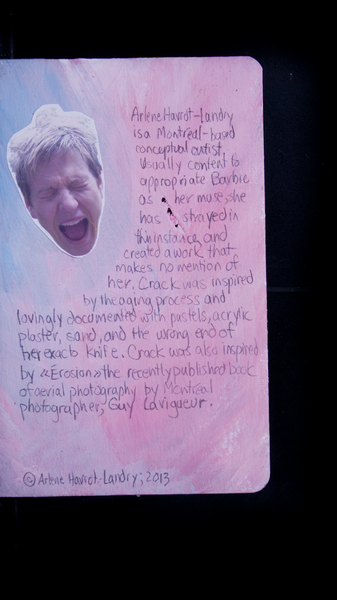 Arlene Havrot-Landry
is a Montréal-based
conceptual artist,
Usually content to
appropriate Barbie
as her muse, she
has strayed in
this instance, and
created a work that
makes no mention of
her. Crack was inspired
by the aging process and
lovingly documented with pastels, acrylic
plaster, sand, and the wrong end of
her exacto knife. Crack was also inspired
by «Erosion» the recently published book
of aerial photography by Montréal
photographer, Guy Lavigueur.
© Arlene Havrot-Landry, 2013